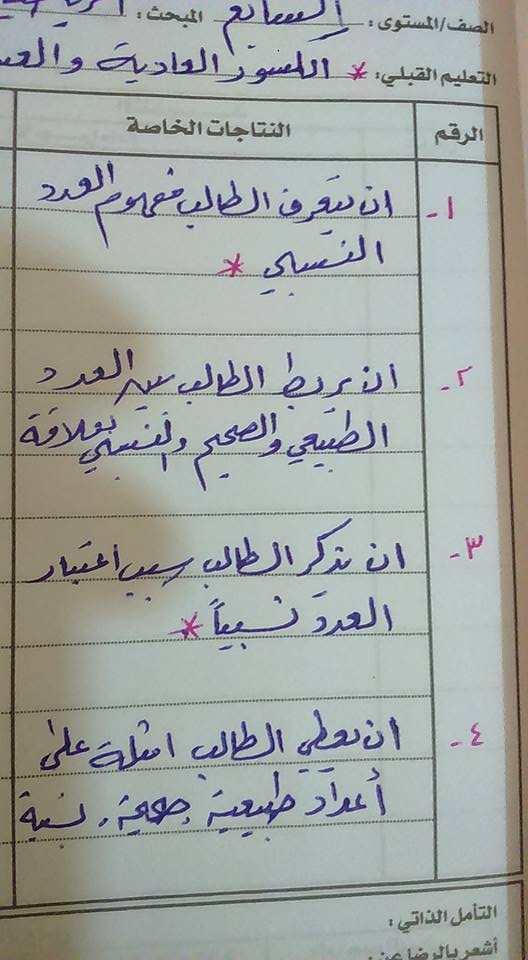 الصف/المستوى: السابع المبحث:
التعليم القبلي: * الكسور العادية
الرقم النتاجات الخاصة
١- ان يتعرف الطالب مفهوم العدد
النسبي *
٢- ان يربط الطالب بين العدد
الطبيعي والصحيح والنسبي بعلاقة
٣- ان يذكر الطالب سبب اعتبار
العدد نسبياً *
٤- ان يعطي الطالب امثلة على
أعداد طبيعية، صحيحة، نسبية
التأمل الذاتي:
أشعر بالرضا عن: